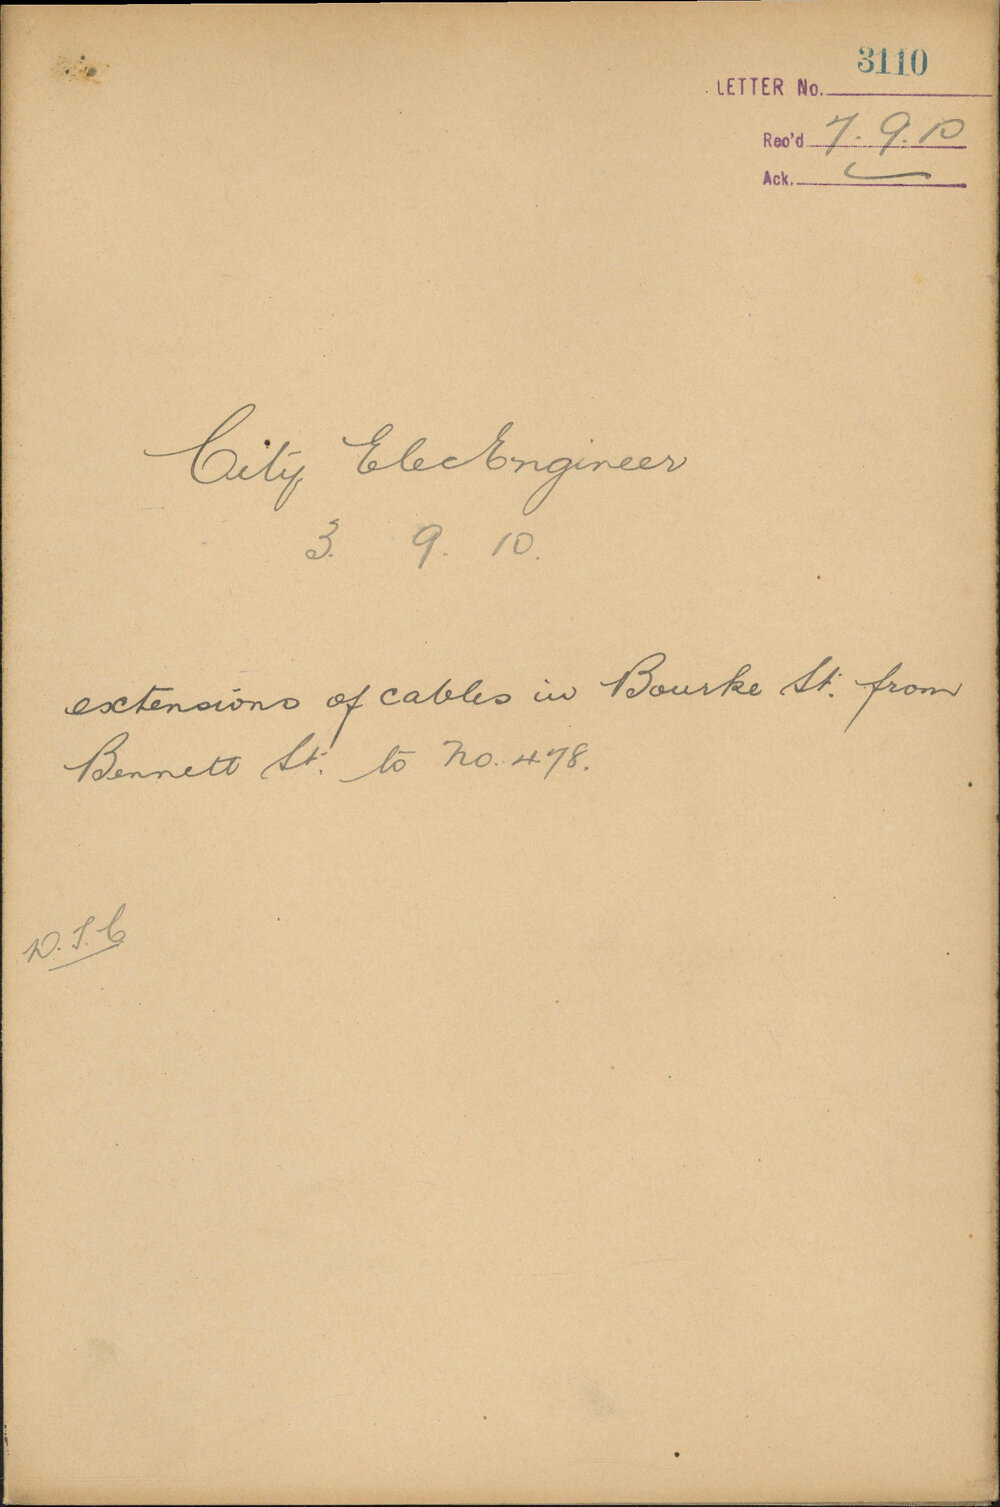 3110
LETTER No.
Rec'd 7. 9. 10
Ack.
City Elec Engineer
3. 9. 10.
extensions of cables in Bourke St. from
Bennett St. to No. 478.